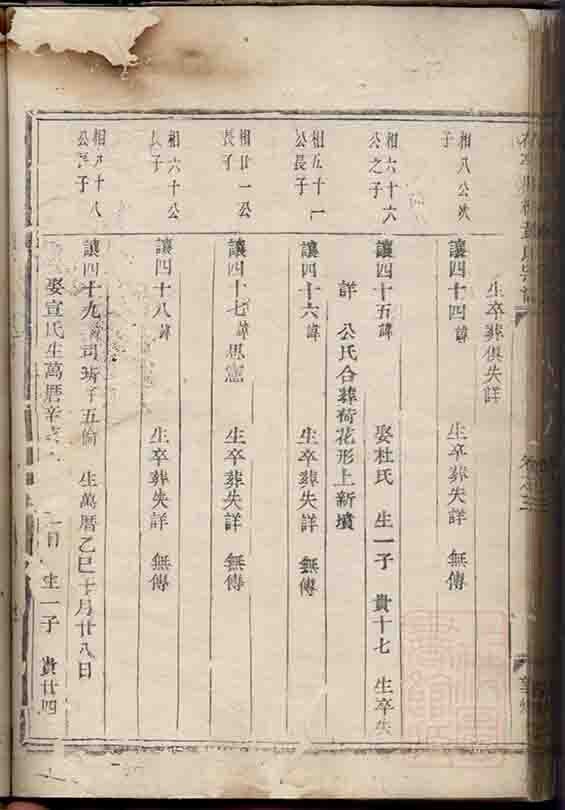 生卒葬俱失詳
相八公次
子
讓四十四諱 生卒葬失詳 無傳
相六十六
公之子
讓四十五諱 娶杜氏 生一子 貴十七 生卒失
詳 公氏合葬荷花形上新墳
相五十一
公長子
讓四十六諱 生卒葬失詳 無傳
相廿一公
長子
讓四十七諱思憲 生卒葬失詳 無傳
相六十公
長子
讓四十八諱 生卒葬失詳 無傳
十八
公長子
讓四十九諱司 五 生萬曆乙巳十月廿八日
娶宣氏生萬曆辛 日 生一子 貴廿四